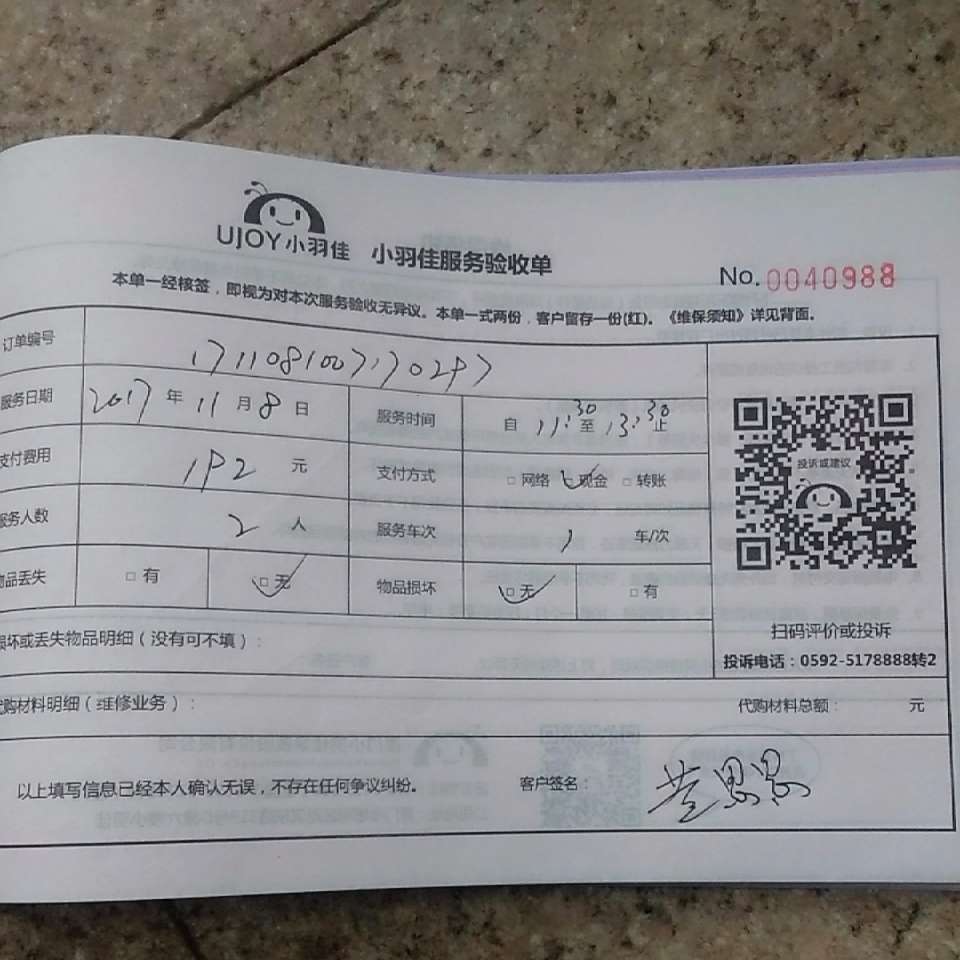 UJOY小羽佳 小羽佳服务验收单
No.0040988
本单一经核签，即视为对本次服务验收无异议。本单一式两份，客户留存一份(红)。《维保须知》详见背面。
订单编号
服务日期 2017年11月8日 服务时间 自11:30至13:30止
支付费用 192元 支付方式 □网络 □现金 □转账
服务人数 2人 服务车次 1车/次
物品丢失 □有 □无 物品损坏 □无 □有
投诉或建议
扫码评价或投诉
投诉电话：0592-5178888转2
损坏或丢失物品明细（没有可不填）：
代购材料明细（维修业务）： 代购材料总额： 元
以上填写信息已经本人确认无误，不存在任何争议纠纷。 客户签名：黄思思